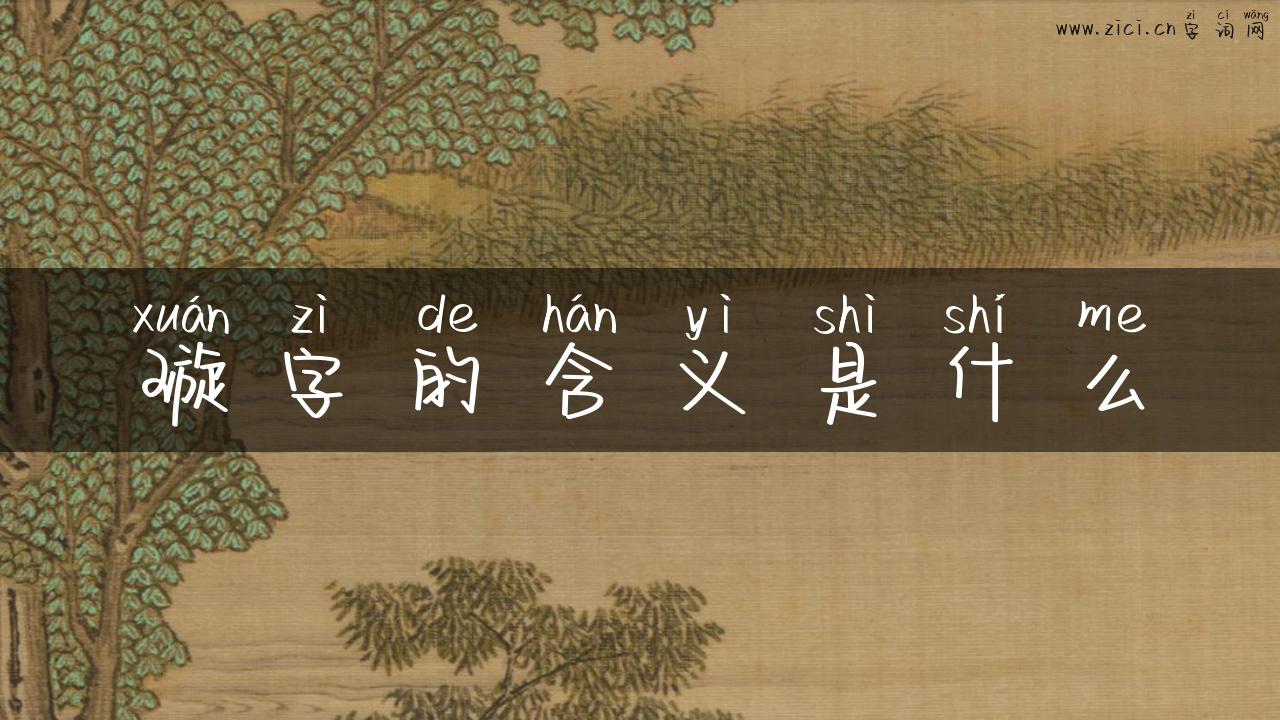 zì cí wǎng
www.zici.cn字词网
xuán zì de hán yì shì shí me
璇字的含义是什么